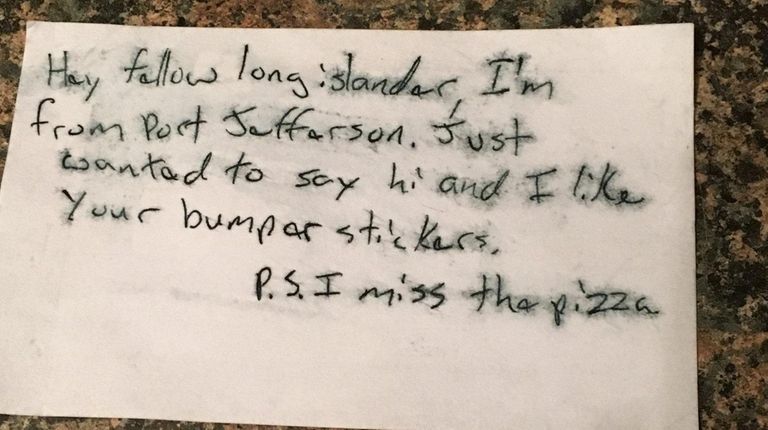 Hey fellow long islander, I'm
from Port Jefferson. Just
wanted to say hi and I like
Your bumper stickers.
P.S. I miss the pizza